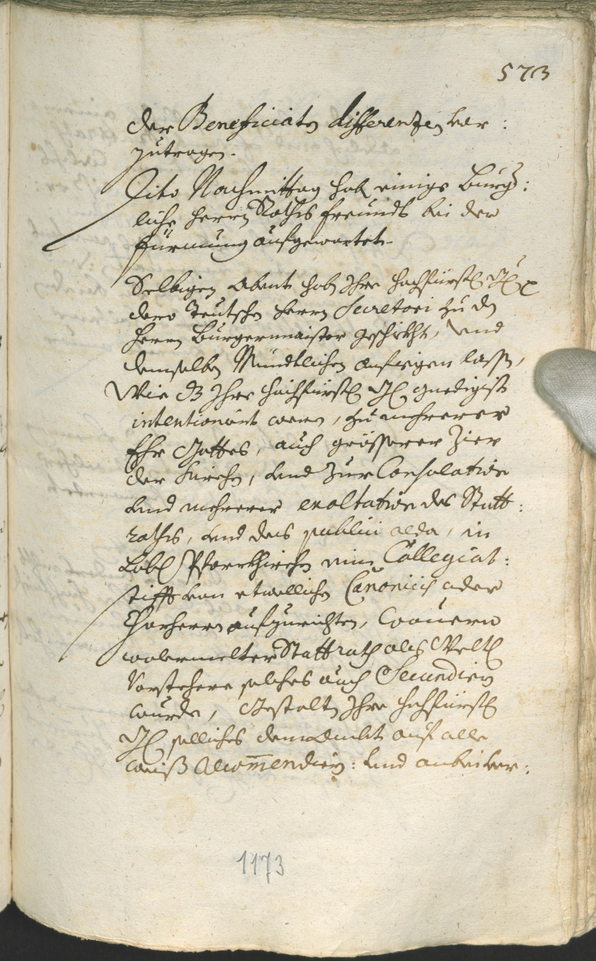 573
der Beneficiaten differenzen vor:
zutragen.
Dito Nachmittag hab einige Burger:
liche Herrn Raths freundt bei der
Fürmung aufgewartet.
Selbigen Abent hab Ihre hochfürstl. Gl.
dero Teutschen Herrn Secretari zu dem
Herrn Burgermaister geschickht, und
demselben Mündtlichen anfiegen lassen,
Wie dz Ihre hochfürstl. Gl. gnedigist
intentioniert weren, zu mehrerer
Ehr Gottes, auch grösserer Zier
der Kirchen, und zur Consolation
und mehrerer exaltation des Statt:
raths, und des publici alda, in
Löbl. Pfarrkirchen ein Collegiat:
stifft von etwelchen Canonicis oder
Chorherrn aufzurichten, Wouern
wolermelter Stattrath als Weltl.
Vorstehere solches auch Secundiern
wurde, Gestalten Ihre hochfürstl.
Gl. solliches demselben auf alle
weiß Recommendiern: und anbei ver:
1173